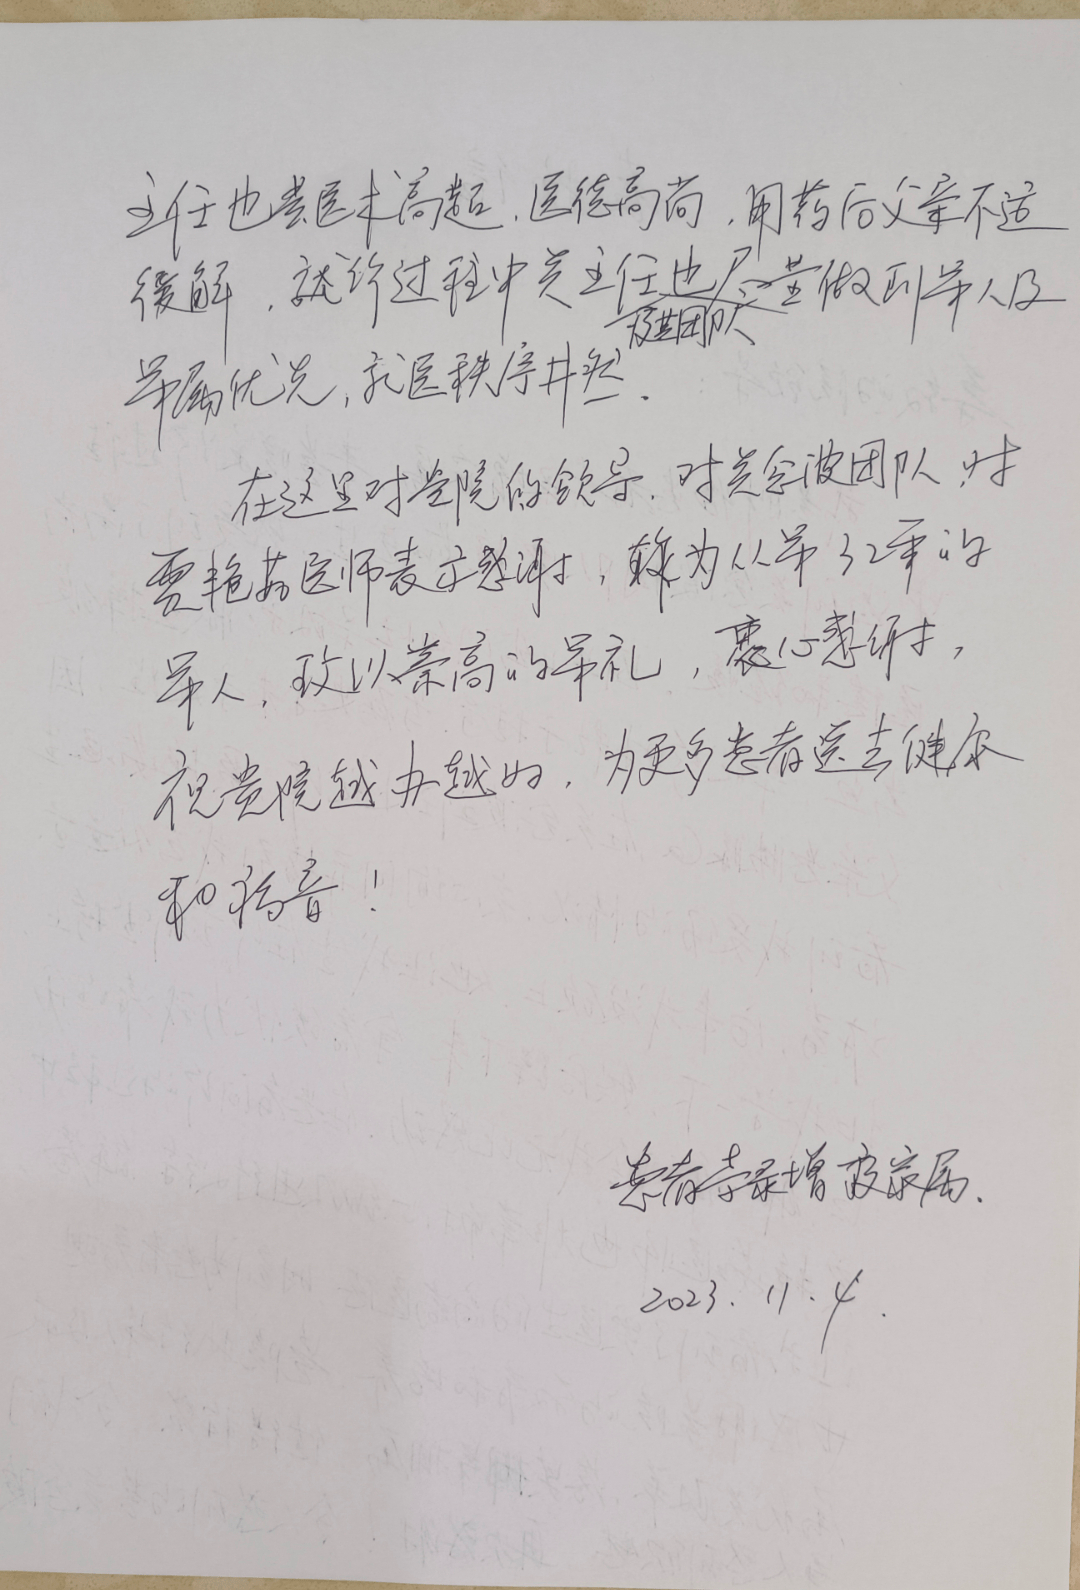 主任也是医术高超、医德高尚，用药后父亲不适
缓解，就诊过程中关主任也尽量做到军人及
及其团队
军属优先，就医秩序井然。
在这里对贵院的领导、对关念波团队、对
贾艳茹医师表示感谢，身为从军32年的
军人，致以崇高的军礼，衷心感谢，
祝贵院越办越好，为更多患者送去健康
和福音！
患者李录增家属、
2023.11.4.